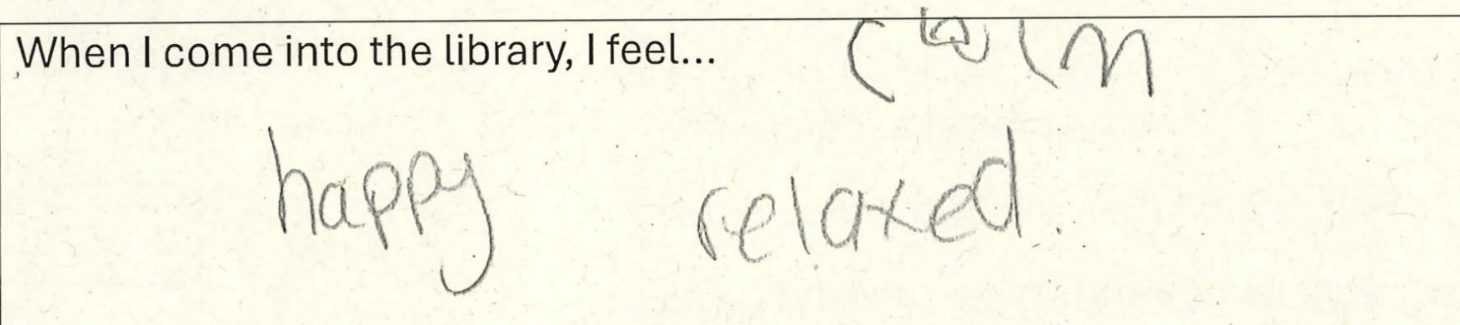 When I come into the library, I feel... calm
happy relaxed.